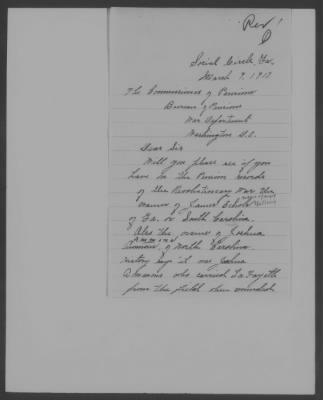 Rev
Social Circle, Ga.
March 9, 1917
The Commissioner of Pensions
Bureau of Pensions
War Department
Washington D.C.
Dear Sir
Will you please see if you
have in the Pension records
of the Revolutionary War the
names of James Echols
of Ga. or South Carolina.
Also the name of Joshua
Ammons
of North Carolina.
History says it was Joshua
Ammons who carried La Fayette
from the field when wounded